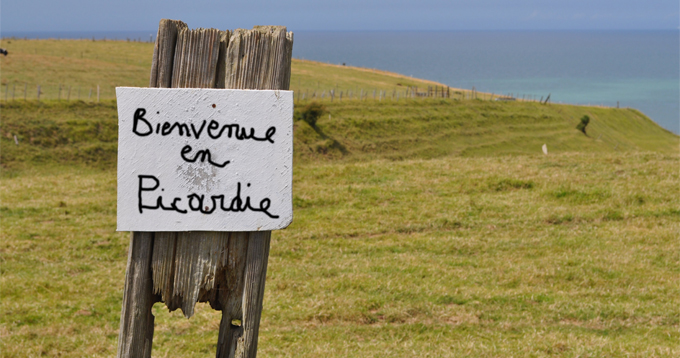 Bienvenue
en
Picardie